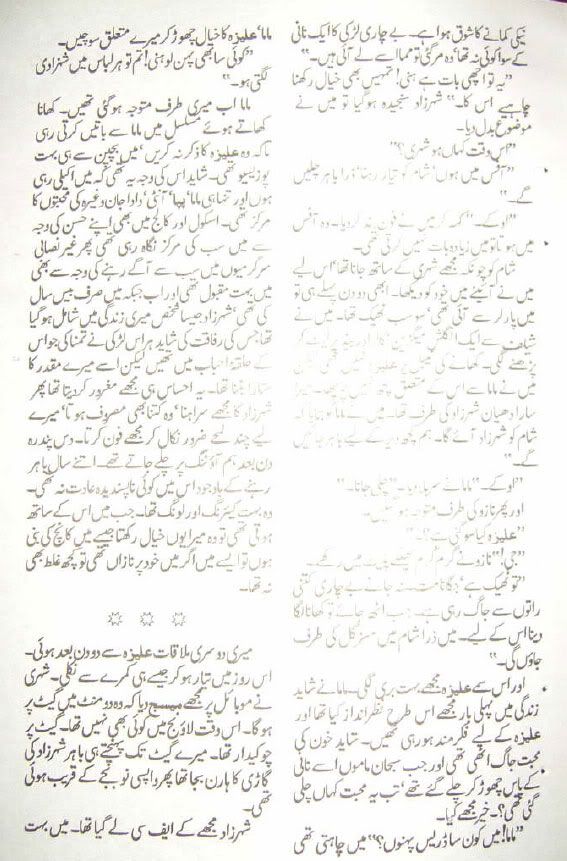 نیکی کمانے کا شوق ہوا ہے۔ بے چاری لڑکی کا ایک نانی
کے سوا کوئی نہ تھا‘ وہ مر گئی تو مما اسے لے آئی ہیں۔“
”یہ تو اچھی بات ہے ہنی! تمہیں بھی خیال رکھنا
چاہیے اس کا۔“ شہرزاد سنجیدہ ہو گیا تو میں نے
موضوع بدل دیا۔
”اس وقت کہاں ہو شہری؟“
”آفس میں ہوں! شام کو تیار رہنا‘ ذرا باہر چلیں
گے۔“
”اوکے۔“ کہہ کر میں نے فون بند کر دیا۔ وہ آفس
میں ہو تا تو میں زیادہ بات نہیں کرتی تھی۔
شام کو چونکہ مجھے شہری کے ساتھ جانا تھا‘ اس لیے
میں نے آئینے میں خود کو دیکھا۔ ابھی دو دن پہلے ہی تو
میں پارلر سے آئی تھی‘ سو سب ٹھیک تھا۔ میں نے
شیلف سے ایک انگلش میگزین نکالا اور بیڈ پر لیٹ کر
پڑھنے لگی۔ کھانے کی میز پر علیزہ نہیں تھی
میں نے ماما سے اس کے متعلق کچھ نہیں پوچھا۔ میرا
سارا دھیان شہرزاد کی طرف تھا۔ میں نے ماما کو بتایا کہ
شام کو شہرزاد آئے گا۔ ہم کچھ دیر کے لیے باہر جائیں
گے۔“
”اوکے۔“ ماما نے سر ہلا دیا۔ ”چلی جانا۔“
اور پھر نازو کی طرف متوجہ ہو گئیں۔
”علیزہ کیا سو گئی ہے؟“
”جی!“ نازو نے گرم گرم پھلکے پلیٹ میں رکھے۔
”تو ٹھیک ہے‘ جگانا مت۔ نہ جانے بے چاری کتنی
راتوں سے جاگ رہی ہے۔ جب اٹھ جائے تو کھانا لگا
دینا اس کے لیے۔ میں ذرا شام میں مسز گل کی طرف
جاؤں گی۔“
اور اس سمے علیزہ مجھے بہت بری لگی۔ ماما نے شاید
زندگی میں پہلی بار مجھے اس طرح نظر انداز کیا تھا اور
علیزہ کے لیے فکر مند ہو رہی تھیں۔ شاید خون کی
محبت جاگ اٹھی تھی اور جب سبحان ماموں اسے نانی
کے پاس چھوڑ کر چلے گئے تھے‘ تب یہ محبت کہاں چلی
گئی تھی؟۔ خیر مجھے کیا۔
”ماما! میں کون سا ڈریس پہنوں؟“ میں چاہتی تھی
ماما‘ علیزہ کا خیال چھوڑ کر میرے متعلق سوچیں۔
”کوئی سا بھی پہن لو ہنی! تم تو ہر لباس میں شہزادی
لگتی ہو۔“
ماما اب میری طرف متوجہ ہو گئی تھیں۔ کھانا
کھاتے ہوئے مسلسل میں ماما سے باتیں کرتی رہی
تاکہ وہ علیزہ کا ذکر نہ کریں‘ میں بچپن سے ہی بہت
پوزیسو تھی۔ شاید اس کی وجہ یہ تھی کہ میں اکیلی رہی
ہوں اور تنہا ہی ماما‘ پپا‘ آنٹی‘ دادا جان وغیرہ کی محبتوں کا
مرکز تھی۔ اسکول اور کالج میں بھی اپنے حسن کی وجہ
سے میں سب کی مرکز نگاہ رہی تھی پھر غیر نصابی
سرگرمیوں میں سب سے آگے رہنے کی وجہ سے بھی
میں بہت مقبول تھی اور اب جبکہ میں صرف بیس سال
کی تھی‘ شہرزاد جیسا شخص میری زندگی میں شامل ہو گیا
تھا جس کی رفاقت کی شاید ہر اس لڑکی نے تمنا کی جو اس
کے حلقہ احباب میں تھیں لیکن اسے میرے مقدر کا
ستارا بننا تھا۔ یہ احساس ہی مجھے مغرور کر دیتا تھا پھر
شہرزاد کا مجھے سراہنا‘ وہ کتنا بھی مصروف ہو تا‘ میرے
لیے چند لمحے ضرور نکال کر مجھے فون کرتا۔ دس پندرہ
دن بعد ہم آؤٹنگ پر چلے جاتے تھے۔ اتنے سال باہر
رہنے کے باوجود اس میں کوئی ناپسندیدہ عادت نہ تھی۔
وہ بہت کیئرنگ اور لونگ تھا۔ جب میں اس کے ساتھ
ہوتی تھی تو وہ میرا یوں خیال رکھتا جیسے میں کانچ کی بنی
ہوں تو ایسے میں اگر میں خود پر نازاں تھی تو کچھ غلط بھی
نہ تھا۔
میری دوسری ملاقات علیزہ سے دو دن بعد ہوئی۔
اس روز میں تیار ہو کر جیسے ہی کمرے سے نکلی۔ شہری
نے موبائل پر مجھے میسج دیا کہ وہ دو منٹ میں گیٹ پر
ہو گا۔ اس وقت لاؤنج میں کوئی بھی نہیں تھا۔ گیٹ پر
چوکیدار تھا۔ میرے گیٹ تک پہنچتے ہی باہر شہرزاد کی
گاڑی کا ہارن بجا تھا پھر واپسی نو بجے کے قریب ہوئی
تھی۔
شہرزاد مجھے کے ایف سی لے گیا تھا۔ میں بہت